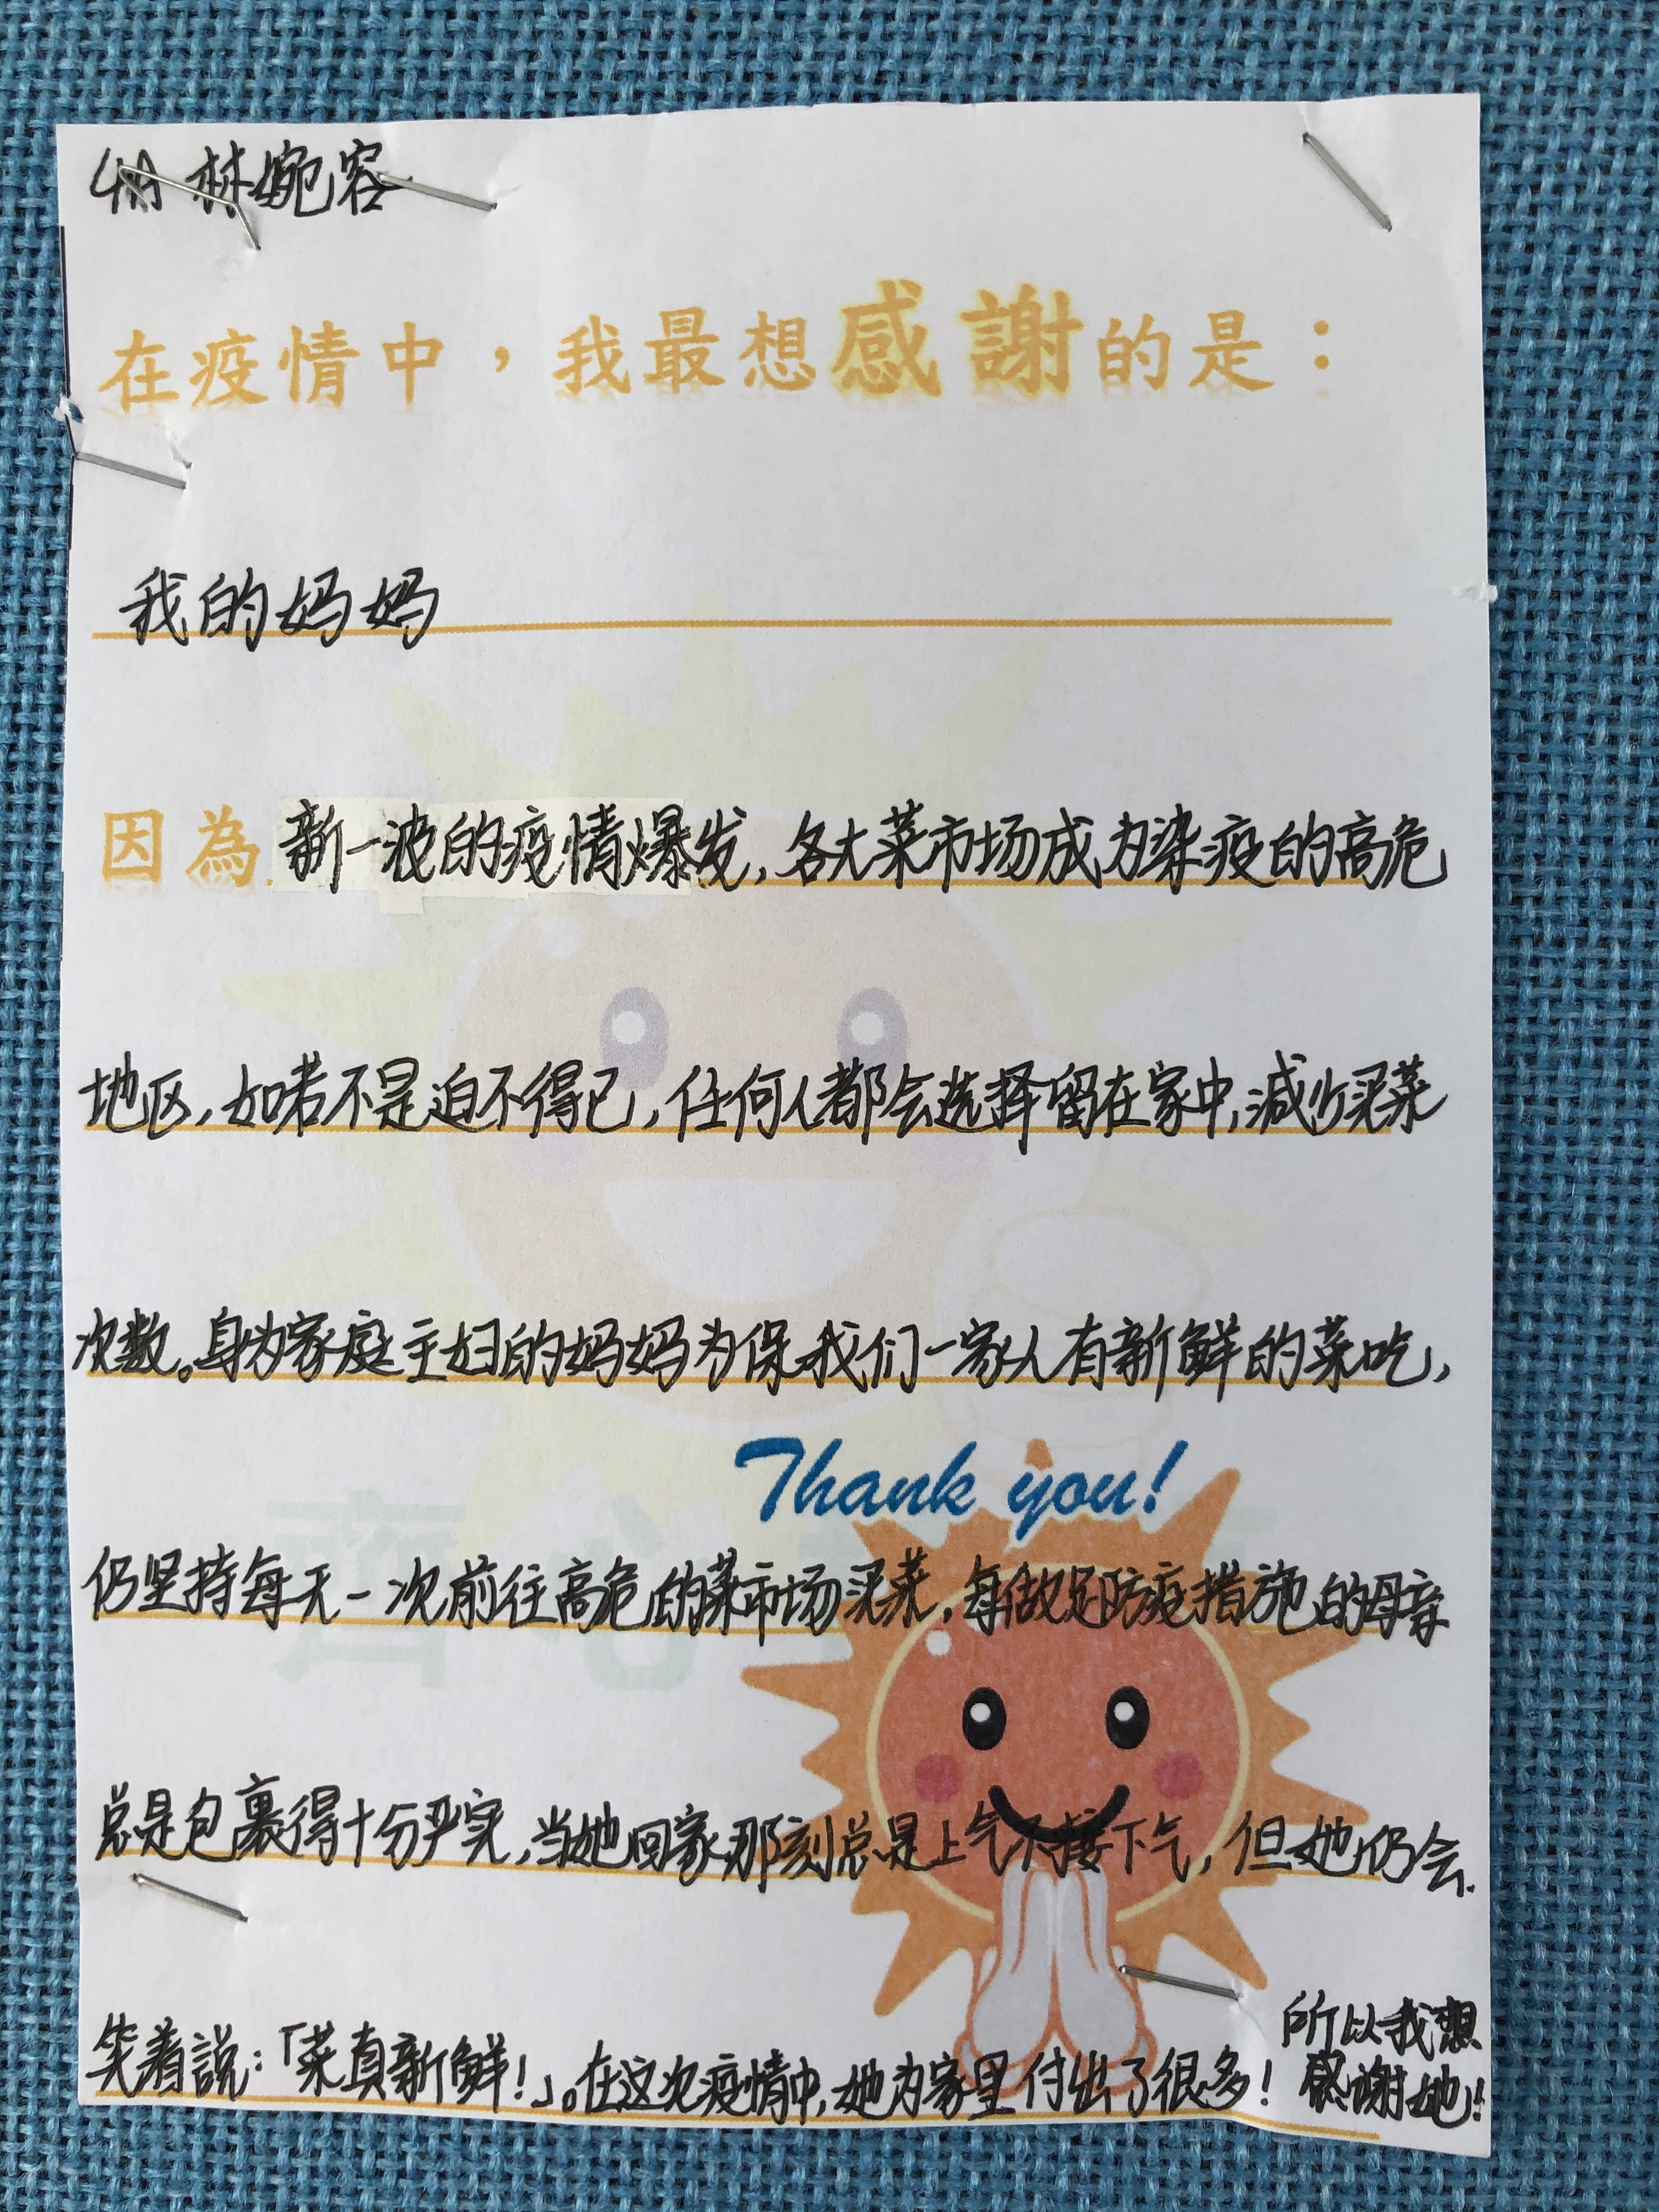 林婉容
在疫情中，我最想感謝的是：
我的妈妈
因為 新一波的疫情爆发，各大菜市场成为染疫的高危
地区，如若不是迫不得已，任何人都会选择留在家中，减少买菜
次数。身为家庭主妇的妈妈为保我们一家人有新鲜的菜吃，
Thank you!
仍坚持每天一次前往高危的菜市场买菜，每做足防疫措施的母亲
总是包裹得十分严实，当她回家那刻总是上气不接下气，但她仍会
笑着說：「菜真新鲜！」。在这次疫情中，她为家里付出了很多！
所以我想
感谢她！！